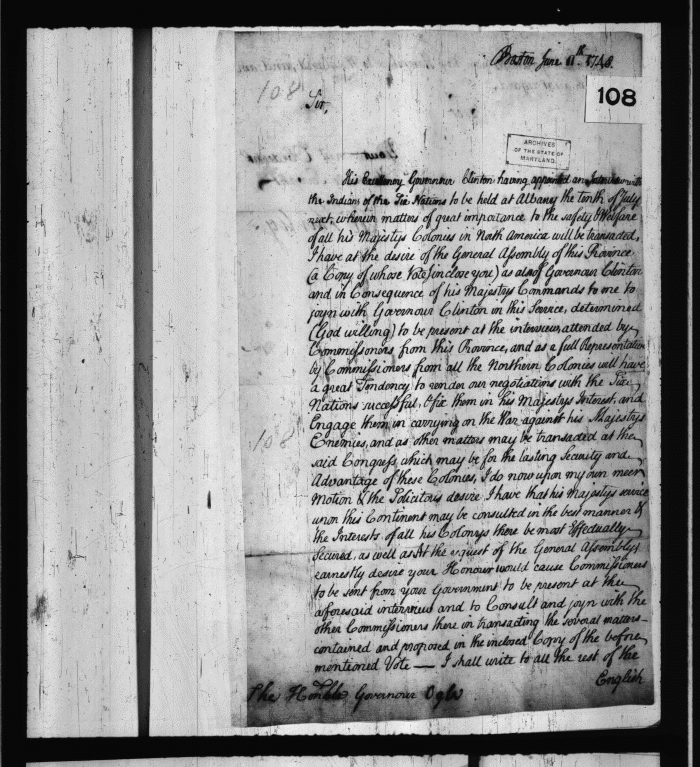 Boston June 11th 1748.
108
108
Sir,
ARCHIVES
OF THE STATE OF
MARYLAND
His Excellency Governour Clinton having appointed an Interview with
the Indians of the Six Nations to be held at Albany the tenth of July
next, wherein matters of great importance to the safety & Welfare
of all his Majestys Colonies in North America will be transacted,
I have at the desire of the General Assembly of this Province
(a Copy of whose Vote I inclose you) as also of Governour Clinton
and in Consequence of his Majestys Commands to me to
joyn with Governour Clinton in this Service, determined
(God willing) to be present at the interview, attended by
Commissioners from this Province, and as a full Representation
by Commissioners from all the Northern Colonies will have
a great Tendency to render our negotiations with the Six
Nations successful, & fix them in his Majestys Interest, and
Engage them in carrying on the War against his Majestys
Enemies, and as other matters may be transacted at the
said Congress, which may be for the lasting Security and
Advantage of these Colonies, I do now upon my own meer
Motion & the Solicitous desire I have that his Majestys service
upon this Continent may be consulted in the best manner &
the Interests of all his Colonys there be most Effectually
Secured, as well as At the request of the General Assembly
earnestly desire your Honour would cause Commissioners
to be sent from your Government to be present at the
aforesaid interview and to Consult and joyn with the
other Commissioners there in transacting the several matters
contained and proposed in the inclosed Copy of the before
mentioned Vote — I shall write to all the rest of the
English
The Honble Governour Ogle
108